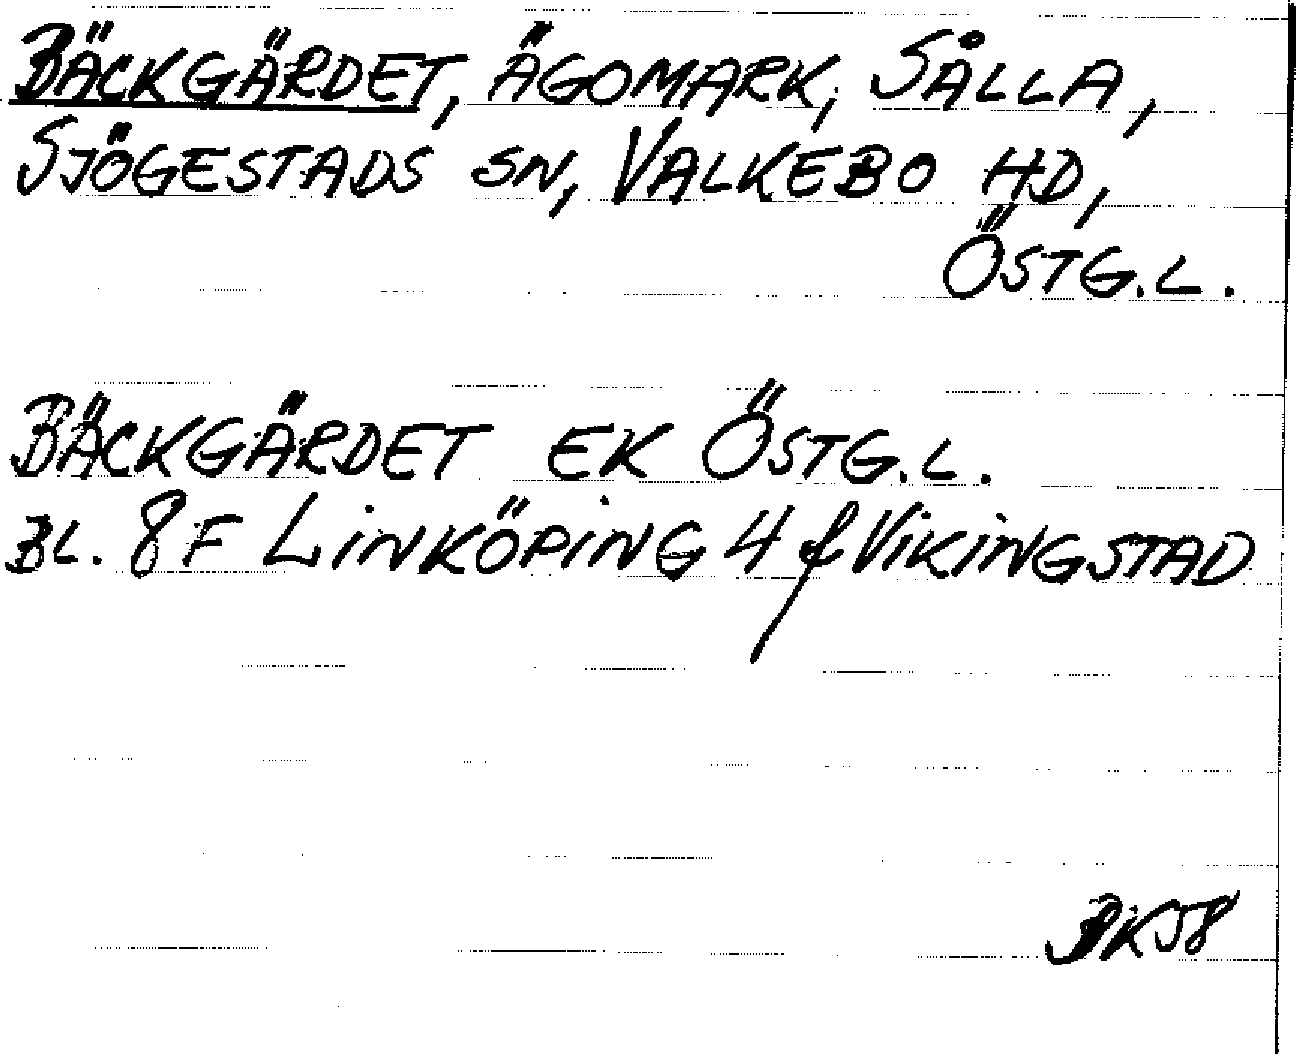 BÄCKGÄRDET, ÄGOMARK, SÅLLA,
SJÖGESTADS SN, VALKEBO HD,
ÖSTG.L.
BÄCKGÄRDET EK ÖSTG.L.
BL. 8F LINKÖPING 4f VIKINGSTAD